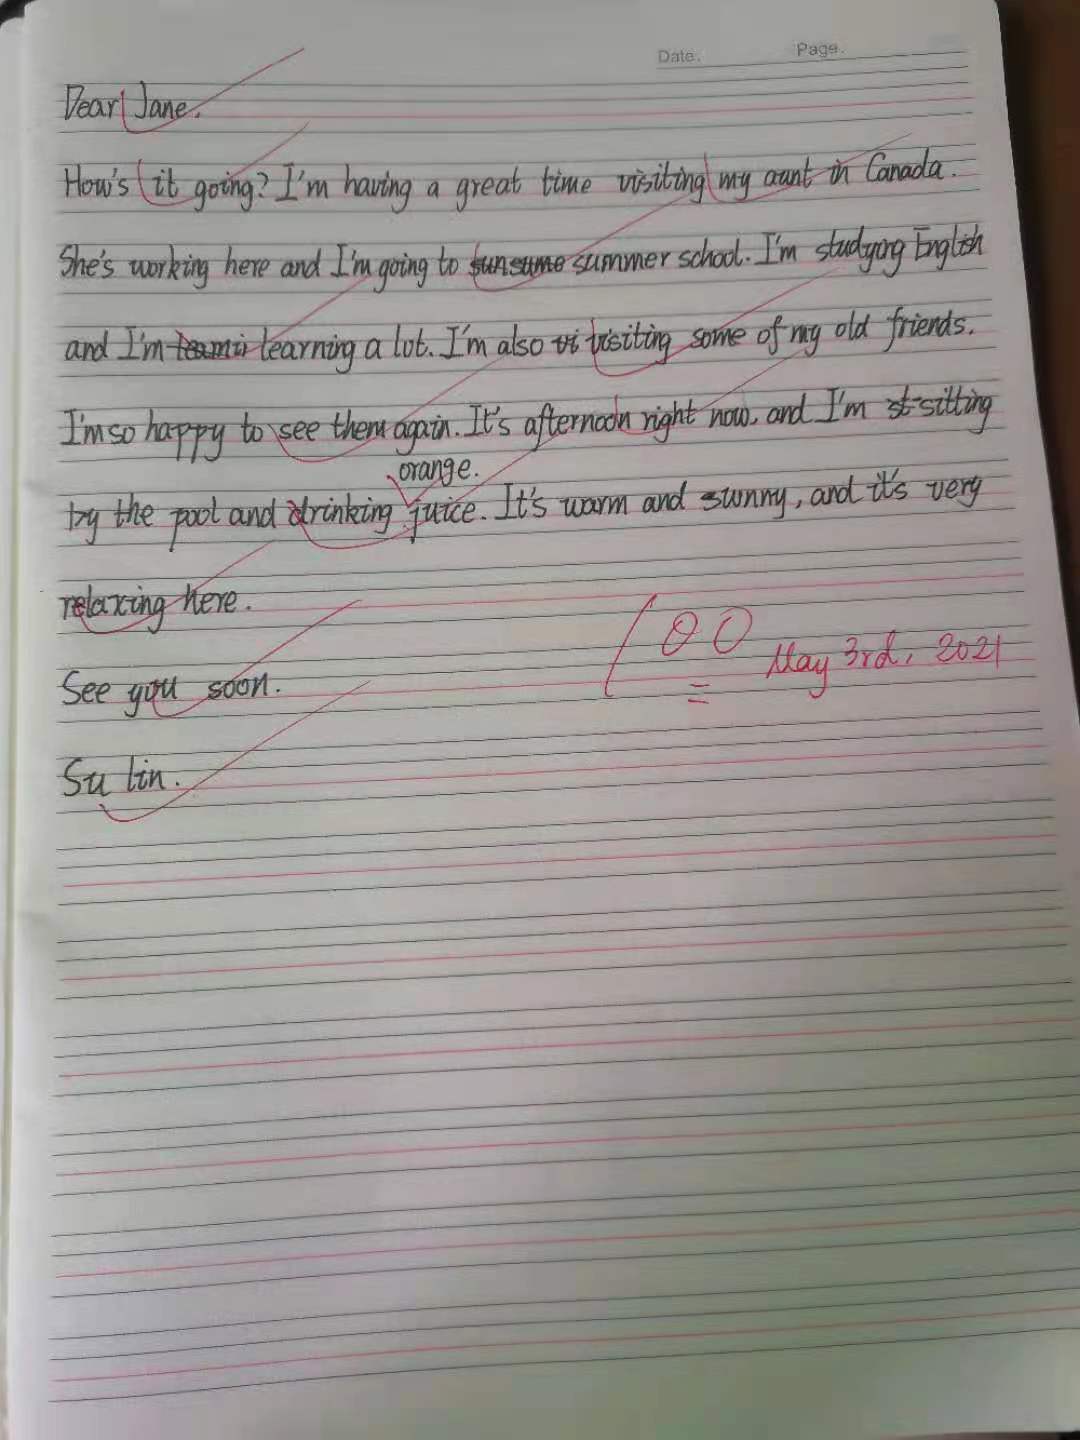 Date. Page.
Dear Jane.
How's it going? I'm having a great time visiting my aunt in Canada.
She's working here and I'm going to summer school. I'm studying English
and I'm learning a lot. I'm also vi visiting some of my old friends.
I'm so happy to see them again. It's afternoon right now, and I'm st sitting
orange.
by the pool and drinking juice. It's warm and sunny, and it's very
relaxing here.
100 May 3rd, 2021
See you soon.
Su lin.